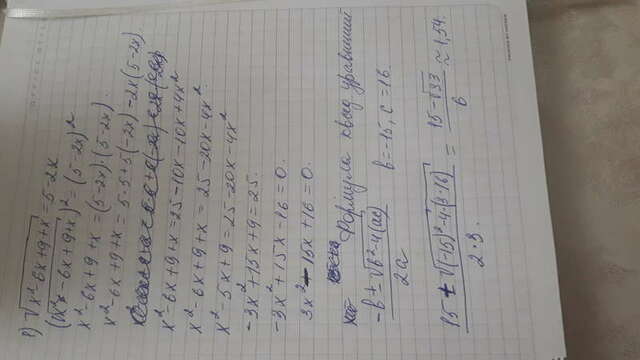 OFFICE
8) √(x²-6x+9+x) = 5-2x
(√(x²-6x+9+x))² = (5-2x)²
x²-6x+9+x = (5-2x)·(5-2x).
x²-6x+9+x = 5·5+5(-2x)-2x(5-2x)
x²-6x+9+x = 25-10x-10x+4x²
x²-6x+9+x = 25-20x-4x²
x²-5x+9 = 25-20x-4x²
-3x²+15x+9 = 25.
-3x²+15x-16 = 0.
3x²-15x+16 = 0.
Формула квад уравнений
(-b±√(b²-4(ac)))/2a b=-15, c=16
(15±√((-15)²-4·(3·16)))/(2·3.) = (15-√33)/6 ≈ 1,54.